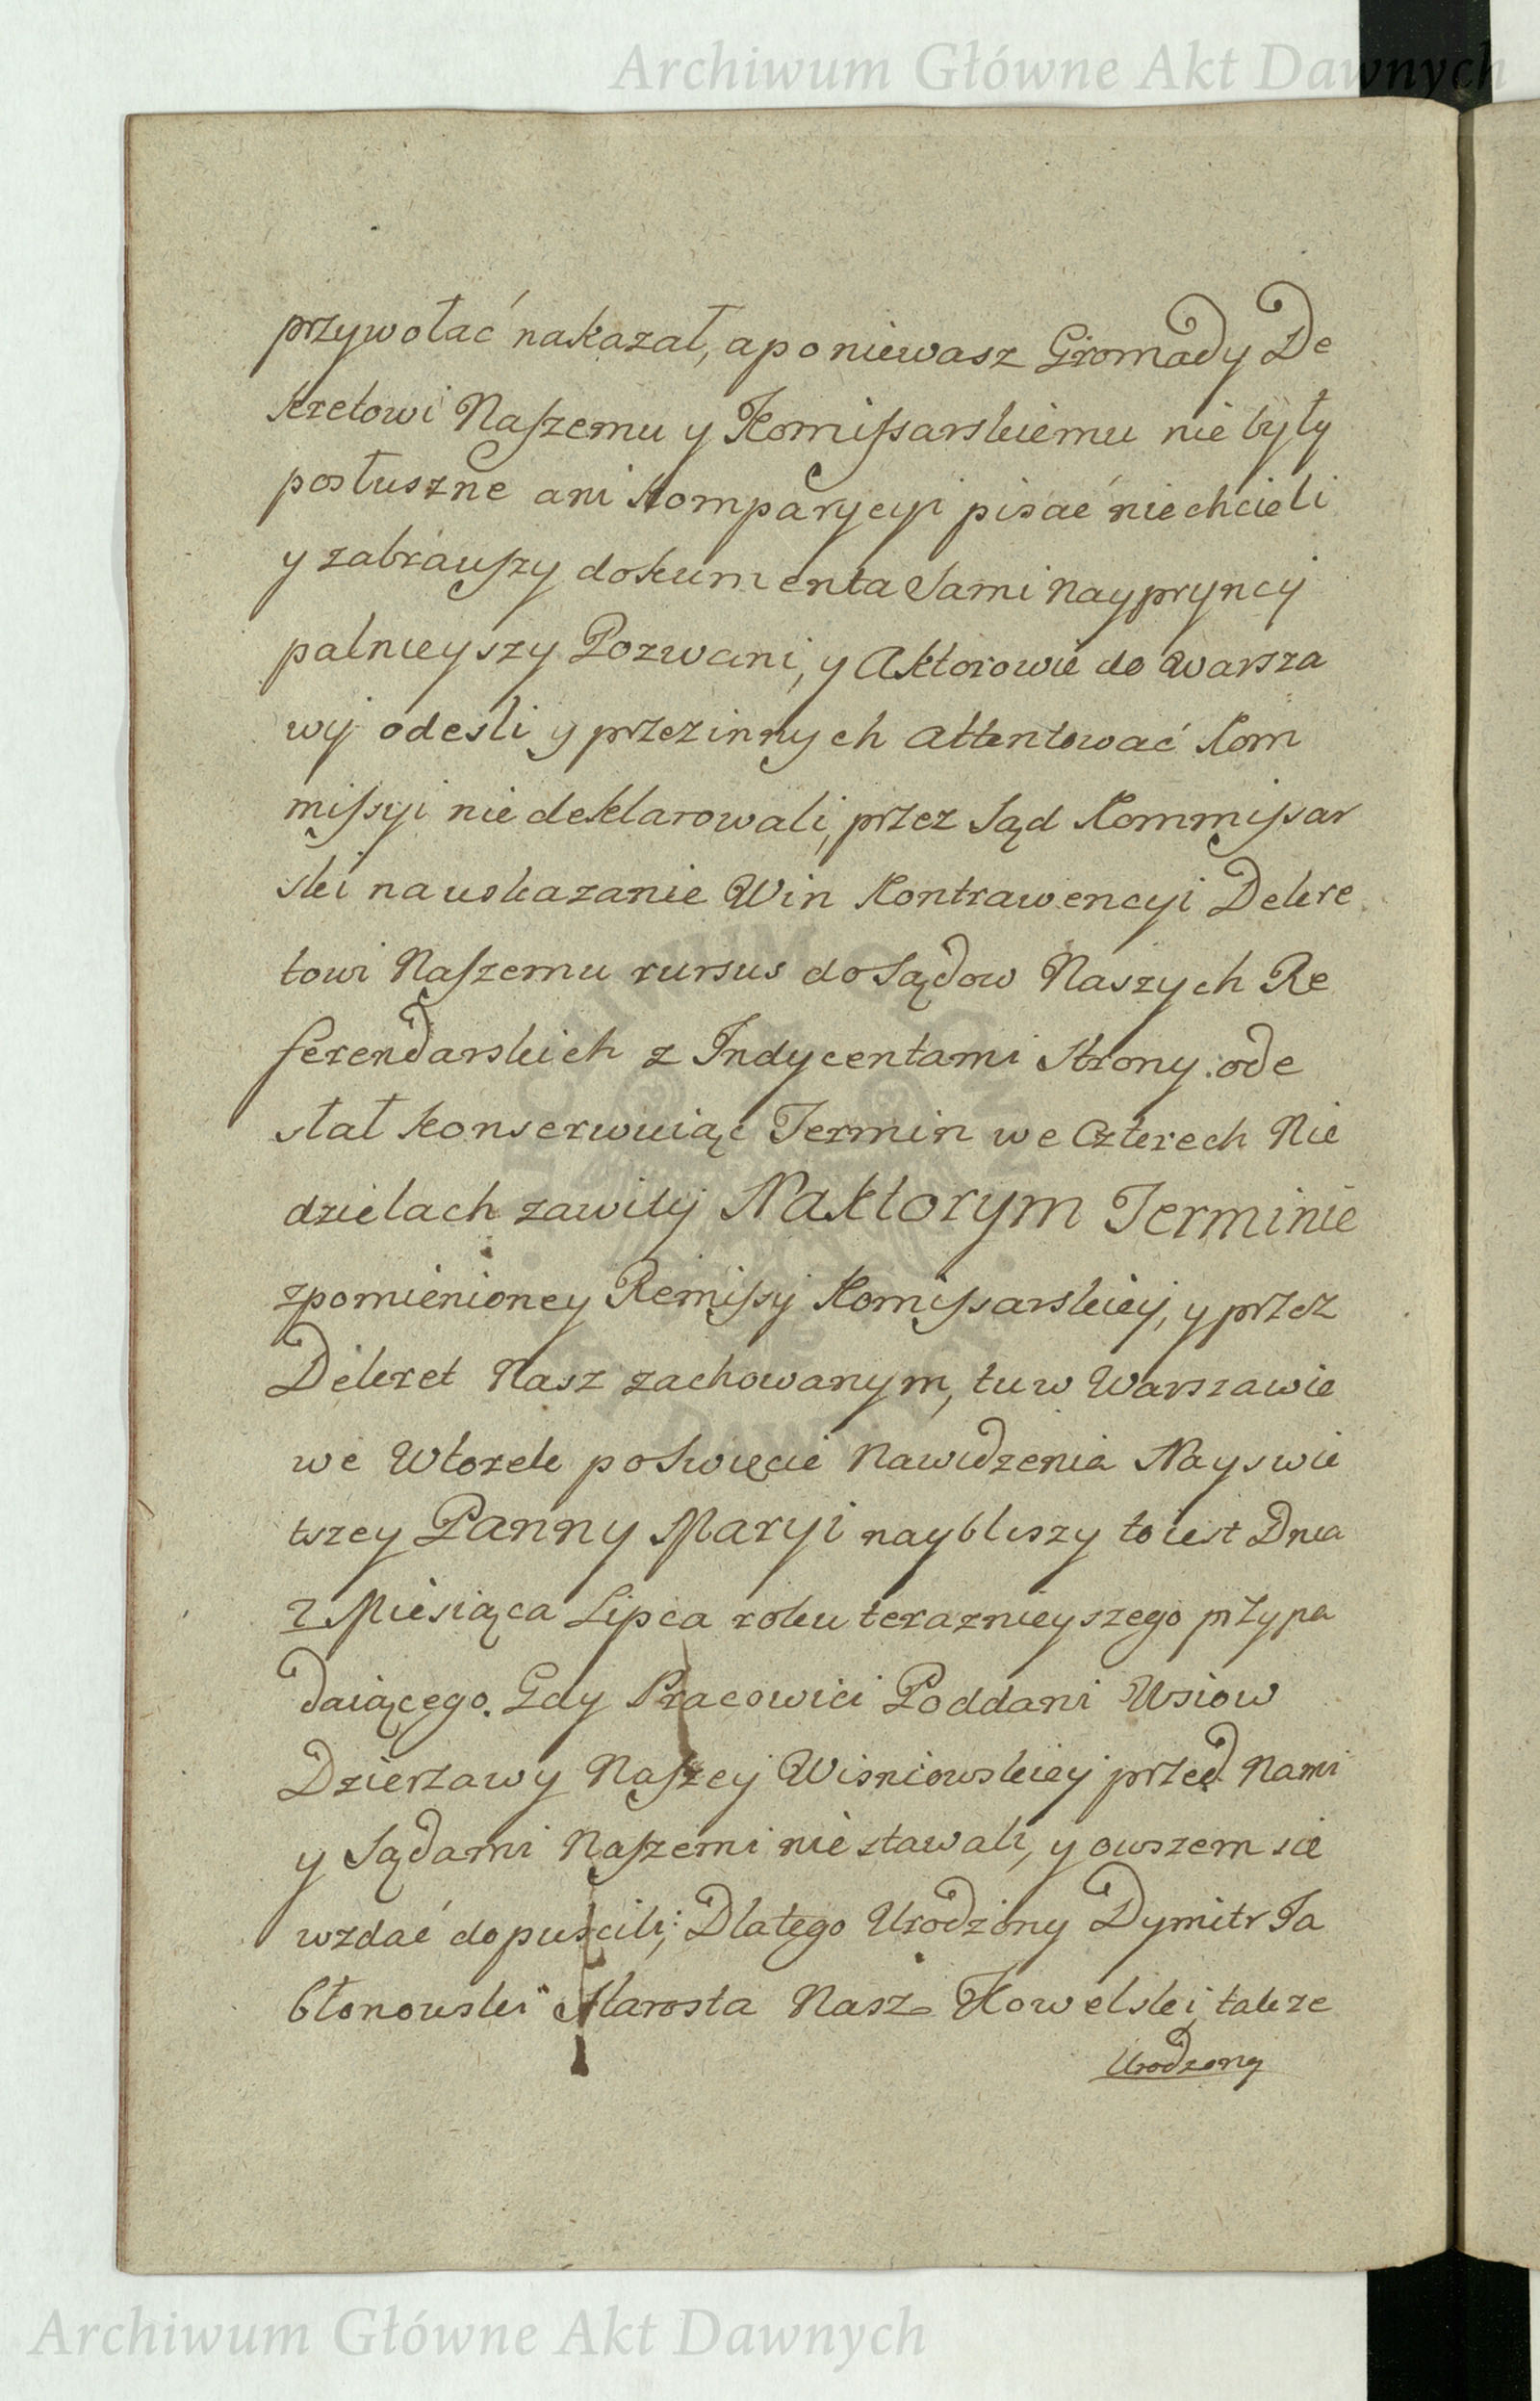 Archiwum Główne Akt Dawnych
przywołać nakazał, aponiewasz Gromady De
kretowi Naszemu y Komissarskiemu nie były
posłuszne ani komparycyi pisać niechcieli
y zabrauszy dokumenta sami naypryncy
palnieyszy Pozwani, y Aktorowie do Warsza
wy odesli y przezinnych attentować Kom
missyi nie deklarowali, przez Sąd Kommissar
ski na uskazanie Win Kontrawencyi Dekre
towi Naszemu rursus do Sądow Naszych Re
ferendarskich z Indycentami strony ode
stał konserwuiąc Termin we Czterech Nie
dzielach zawity Naktorym Terminie
zpomienioney Remissy Komissarskiey, y przez
Dekret Nasz zachowanym, tu w Warszawie
we Wtorek poswięcie Nawidzenia Nayswie
tszey Panny Maryi naybliszy to iest Dnia
7 Miesiąca Lipca roku terazniejszego przypa
daiącego. Gdy Pracowici Poddani Wsiow
Dzierzawy Naszey Wisniowskiey przed Nami
y Sądami Naszemi nie stawali, y owszem sie
wzdać dopuscili; Dlatego Urodzony Dymitr Ja
błonowski Starosta Nasz Kowelski, takze
Urodzony
Archiwum Główne Akt Dawnych